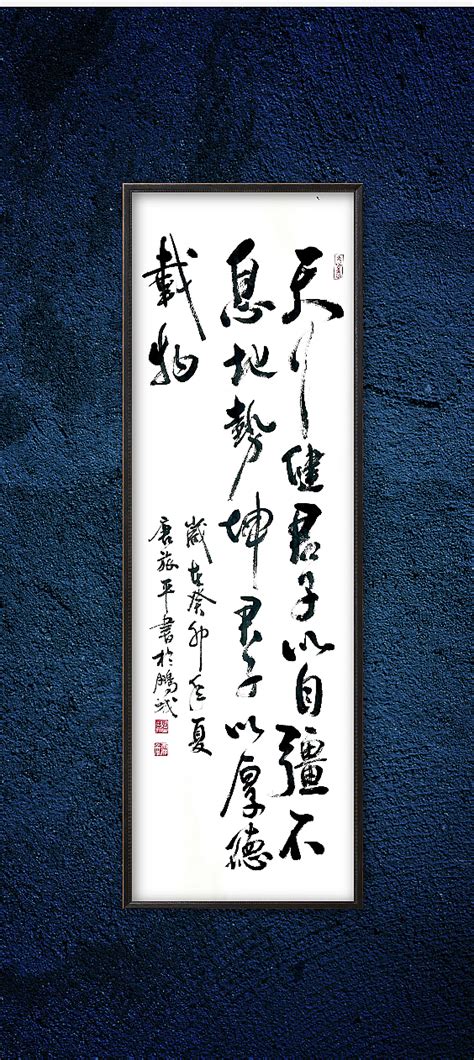 天行健君子以自彊不
息地勢坤君子以厚德
載物
歲在癸卯年夏
唐旅平書於鵬城